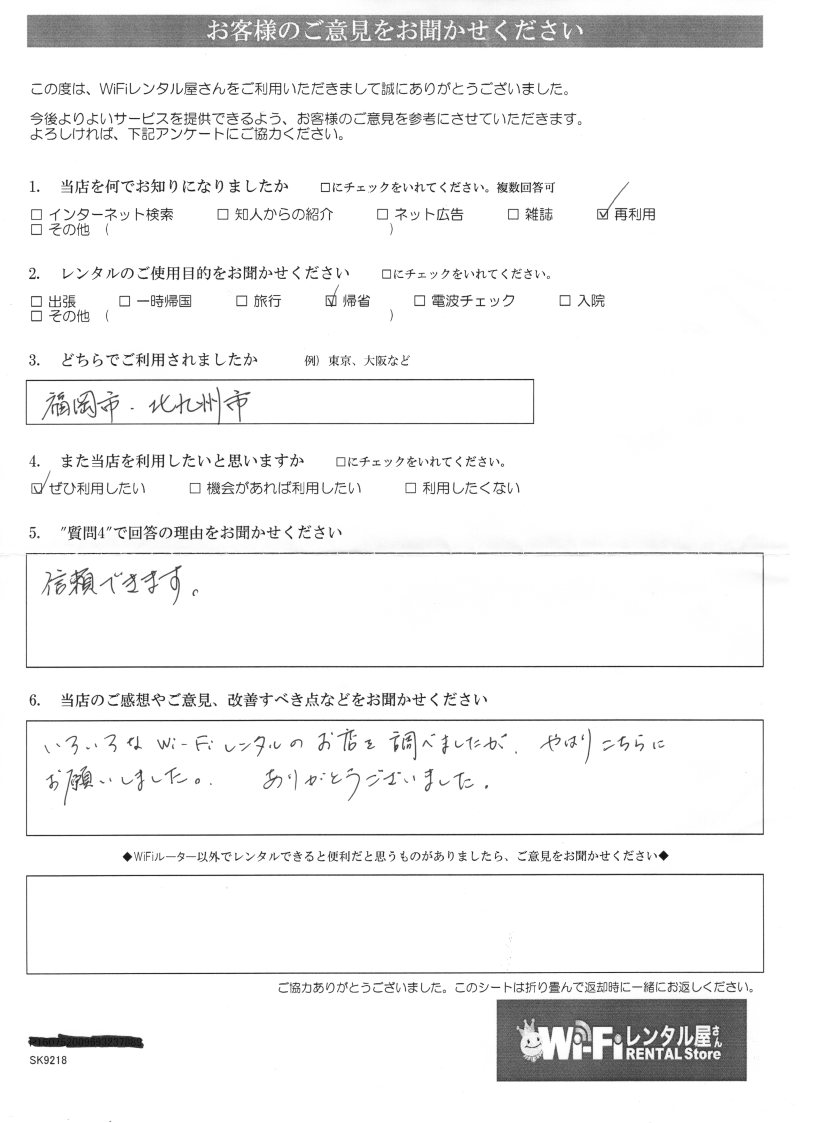 お客様のご意見をお聞かせください
この度は、WiFiレンタル屋さんをご利用いただきまして誠にありがとうございました。
今後よりよいサービスを提供できるよう、お客様のご意見を参考にさせていただきます。
よろしければ、下記アンケートにご協力ください。
1. 当店を何でお知りになりましたか □にチェックをいれてください。複数回答可
□ インターネット検索 □ 知人からの紹介 □ ネット広告 □ 雑誌 ☑ 再利用
□ その他 ( )
2. レンタルのご使用目的をお聞かせください □にチェックをいれてください。
□ 出張 □ 一時帰国 □ 旅行 ☑ 帰省 □ 電波チェック □ 入院
□ その他 ( )
3. どちらでご利用されましたか 例) 東京、大阪など
福岡市・北九州市
4. また当店を利用したいと思いますか □にチェックをいれてください。
☑ ぜひ利用したい □ 機会があれば利用したい □ 利用したくない
5. "質問4"で回答の理由をお聞かせください
信頼できます。
6. 当店のご感想やご意見、改善すべき点などをお聞かせください
いろいろな Wi-Fi レンタルのお店を調べましたが、やはりこちらに
お願いしました。 ありがとうございました。
◆WiFiルーター以外でレンタルできると便利だと思うものがありましたら、ご意見をお聞かせください◆
ご協力ありがとうございました。このシートは折り畳んで返却時に一緒にお返しください。
SK9218
Wi-Fiレンタル屋さん
RENTAL Store